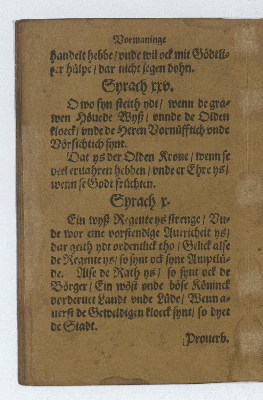 Vormaninge
handelt hebbe/ vnde wil ock mit Gödtli-
ker hülpe/ dar nicht jegen dohn.
Syrach xxv.
O wo fyn steith ydt/ wenn de gra-
wen Höuede Wyß/ vnnde de Olden
kloeck/ vnde de Heren Vornüfftich vnde
Vörsichtich synt.
Dat ys der Olden Krone/ wenn se
veel erfahren hebben/ vnde er Ehre ys/
wenn se Godt früchten.
Syrach x.
Ein wyß Regente ys strenge/ Vn-
de wor eine vorstendige Auricheit ys/
dar geith ydt ordentlick tho/ Gelick alse
de Regente ys/ so synt ock syne Amptlü-
de. Alse de Rath ys/ so synt ock de
Börger/ Ein wöst vnde böse Köninck
vorderuet Landt vnde Lüde/ Wenn a-
uerst de Geweldigen kloeck synt/ so dyet
de Stadt.
Prouerb.